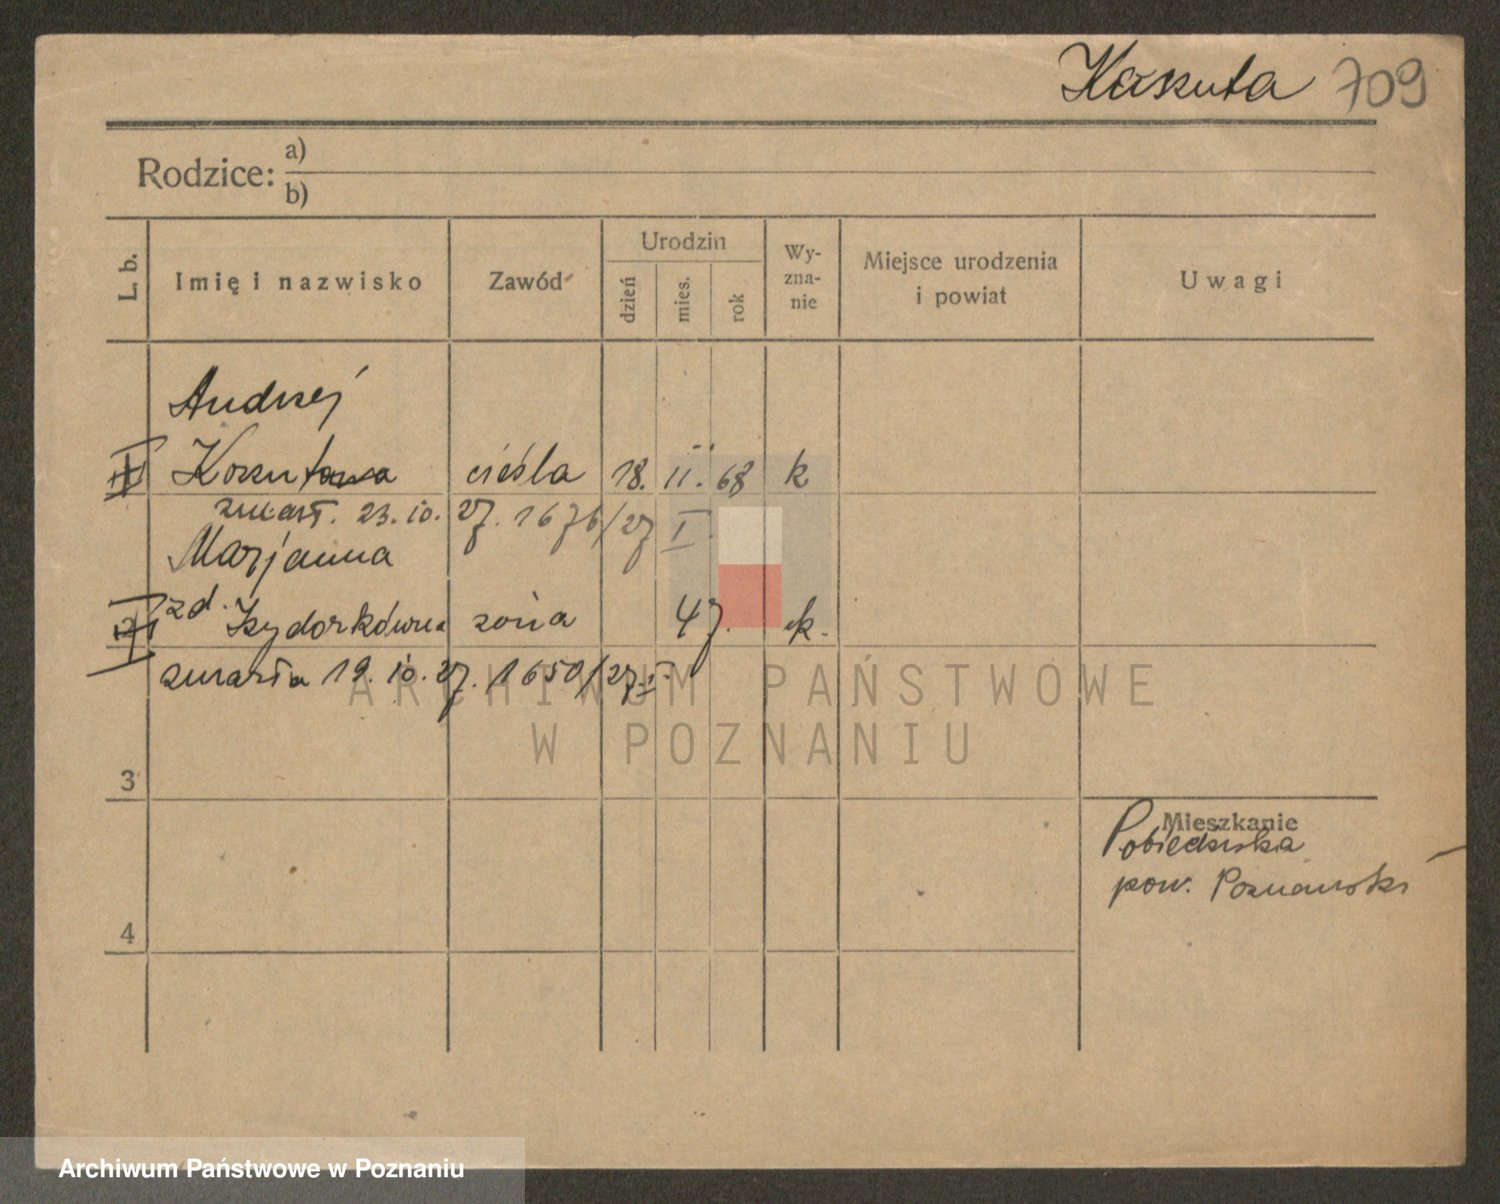 Kaskuta 709
Rodzice: a)
b)
L. b. Imię i nazwisko Zawód Urodzin dzień mies. rok Wy-zna-nie Miejsce urodzenia i powiat Uwagi
Andrzej
cieśla 18. II. 68 k
zmarł. 23. 10. 27. 1676/27 I.
Marjanna
zd. Izydorkówna żona 47. k.
zmarła 19. 10. 27. 1650/27. I.
ARCHIWUM PAŃSTWOWE
W POZNANIU
3
Mieszkanie
Pobiedziska
pow. Poznański
4
Archiwum Państwowe w Poznaniu